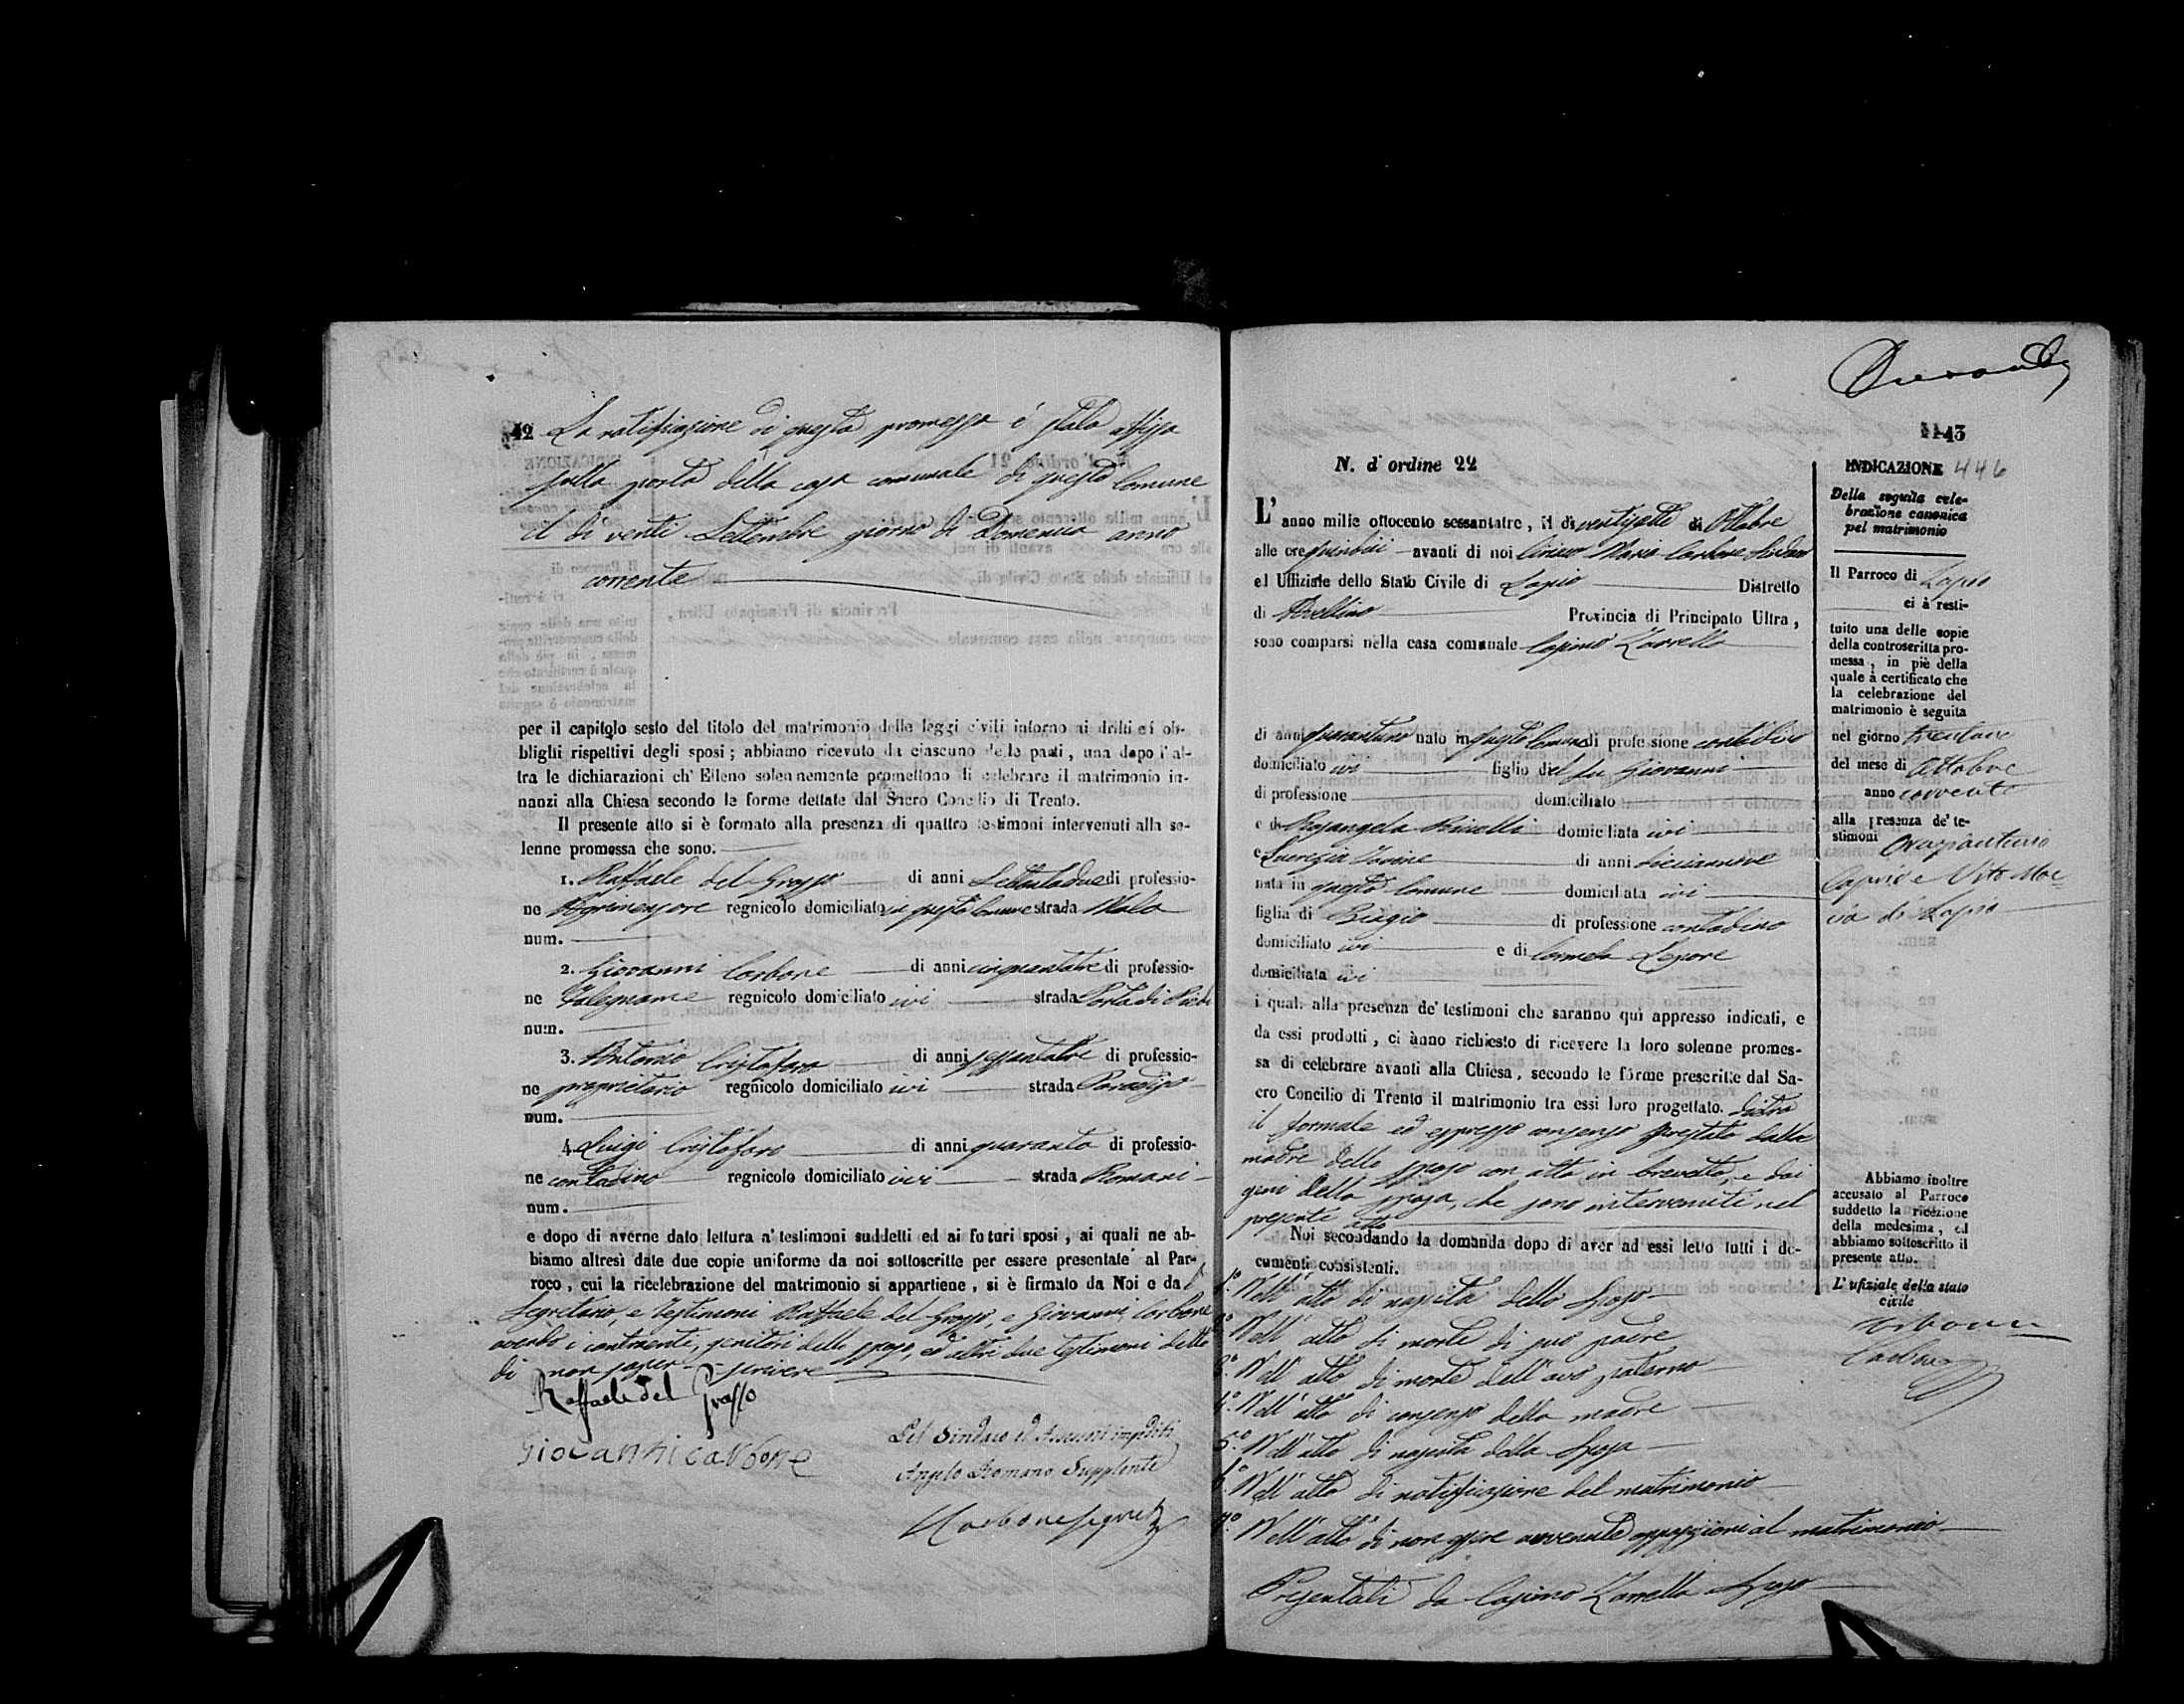 42 La notificazione di questa promessa è stata affissa
sulla porta della casa comunale di questo Comune
il dì venti Settembre giorno di Domenica anno
corrente
per il capitolo sesto del titolo del matrimonio delle leggi civili intorno ai dritti ed ob-
blighi rispettivi degli sposi; abbiamo ricevuto da ciascuno delle parti, una dopo l'al-
tra le dichiarazioni ch' Elleno solennemente promettono di celebrare il matrimonio in-
nanzi alla Chiesa secondo le forme dettate dal Sacro Concilio di Trento.
Il presente atto si è formato alla presenza di quattro testimoni intervenuti alla so-
lenne promessa che sono:
1. Raffaele del Grosso di anni Settantadue di professio-
ne Agrimensore regnicolo domiciliato in questo Comune strada Mala
num.
2. Giovanni Carbone di anni cinquantatre di professio-
ne Falegname regnicolo domiciliato ivi strada Porta di
num.
3. Antonio Cristofaro di anni sessantatre di professio-
ne proprietario regnicolo domiciliato ivi strada Paradiso
num.
4. Luigi Cristofaro di anni quaranta di professio-
ne contadino regnicolo domiciliato ivi strada Romani
num.
e dopo di averne dato lettura a' testimoni suddetti ed ai futuri sposi, ai quali ne ab-
biamo altresì date due copie uniforme da noi sottoscritte per essere presentate al Par-
roco, cui la ricelebrazione del matrimonio si appartiene, si è firmato da Noi e dal
Segretario, e testimoni Raffaele del Grosso, e Giovanni Carbone
avendo i contraenti, genitori dello sposo, ed altri due testimoni detto
di non saper scrivere
Raffaele del Grosso
Giovanni Carbone
Pel Sindaco ed Assessori impediti
Angelo Romano Supplente
Carbone Segret
43
N. d' ordine 22
L' anno mille ottocento sessantatre, il dì ventisette di Ottobre
alle ore quindici avanti di noi Ciriaco Maria Carbone Sindaco
ed Uffiziale dello Stato Civile di Lapio Distretto
di Avellino Provincia di Principato Ultra,
sono comparsi nella casa comunale Cosimo Zarrella
di anni quarantuno nato in questo Comune di professione contadino
domiciliato ivi figlio del fu Giovanni
di professione domiciliato
e di Rosangela domiciliata ivi
e Lucrezia Iovine di anni diciannove
nata in questo Comune domiciliata ivi
figlia di Biagio di professione contadino
domiciliato ivi e di Carmela Lepore
domiciliata ivi
i quali alla presenza de' testimoni che saranno qui appresso indicati, e
da essi prodotti, ci ànno richiesto di ricevere la loro solenne promes-
sa di celebrare avanti alla Chiesa, secondo le forme prescritte dal Sa-
cro Concilio di Trento il matrimonio tra essi loro progettato. dietro
il formale ed espresso consenso prestato dalla
madre dello sposo con atto in brevetto, e dai
geni della sposa, che sono intervenuti nel
presente atto
Noi secondando la domanda dopo di aver ad essi letto tutti i do-
cumenti consistenti.
1° Nell' atto di nascita dello Sposo
2° Nell' atto di morte di suo padre
3° Nell' atto di morte dell' avo paterno
4° Nell' atto di consenso della madre
5° Nell' atto di nascita della Sposa
6° Nell' atto di notificazione del matrimonio
7° Nell' atto di non essere avvenute opposizioni al matrimonio
Presentati da Cosimo Zarrella Sposo
INDICAZIONE 446
Della seguita cele-
brazione canonica
pel matrimonio
Il Parroco di Lapio
ci à resti-
tuito una delle copie
della controscritta pro-
messa, in piè della
quale à certificato che
la celebrazione del
matrimonio è seguita
nel giorno trentuno
del mese di Ottobre
anno corrente
alla presenza de' te-
stimoni
Caprio e Vito
di Lapio
Abbiamo inoltre
accusato al Parroco
suddetto la ricezione
della medesima, ed
abbiamo sottoscritto il
presente atto.
L' ufiziale dello stato
civile
Carbone
Carbone